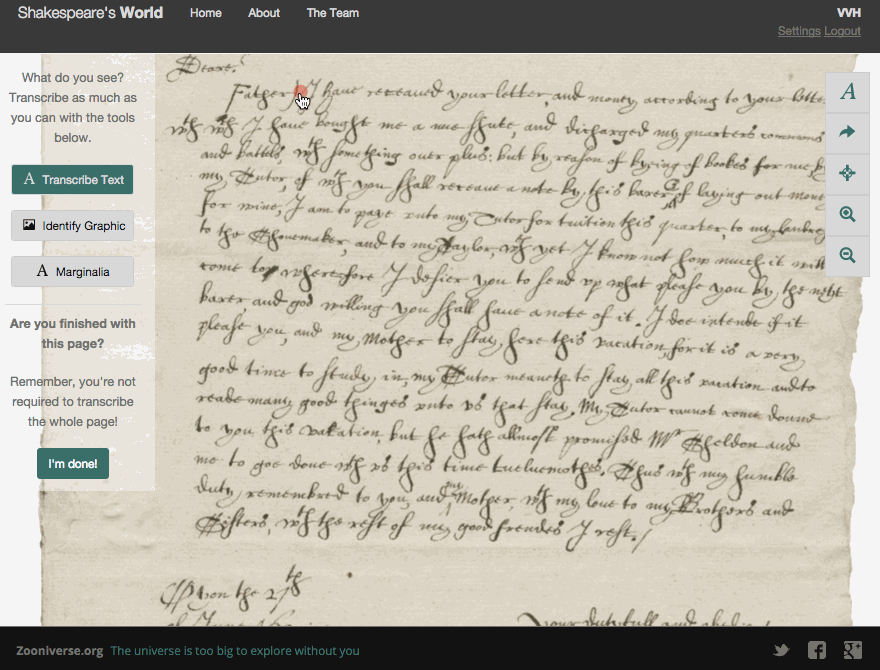 Shakespeare's World
Home
About
The Team
VVH
Settings Logout
What do you see?
Transcribe as much as
you can with the tools
below.
A Transcribe Text
Identify Graphic
A Marginalia
Are you finished with
this page?
Remember, you're not
required to transcribe
the whole page!
I'm done!
A
Deare
Father I have receaued your letter, and money according to your lette
wth wch I have bought me a nue shute, and discharged my quarters commons
and battels, wth something over plus: but by reason of byeing of bookes for me, by
my Tutor, of wch you shall receaue a note by, this barer, of laying out mony
for wine, I am to paye vnto my Tutor for tuition this quarter, to my
to the Shoumaker, and to my Taylor, wch yet I know not how much it will
come to, wherefore I desier you to send vp what please you by, the next
barer, and god willing you shall have a note of it. I doe intende if it
please you, and my, Mother to stay, here this vacation, for it is a very
good time to study, in, my Tutor meaneth to stay all this vacation and to
reade many good thinges vnto vs that stay, My, Tutor cannot come downe
to you this vacation, but he hath allmost promised Mr Sheldon and
me to goe done wth vs this time twelvemothes. Thus wth my humble
duty, remembred to you, and my Mother, wth my love to my Brothers and
Sisters, wth the rest of my good frendes I rest./
Vpon the 27th
of June
your dutyfull and obedient
Zooniverse.org The universe is too big to explore without you